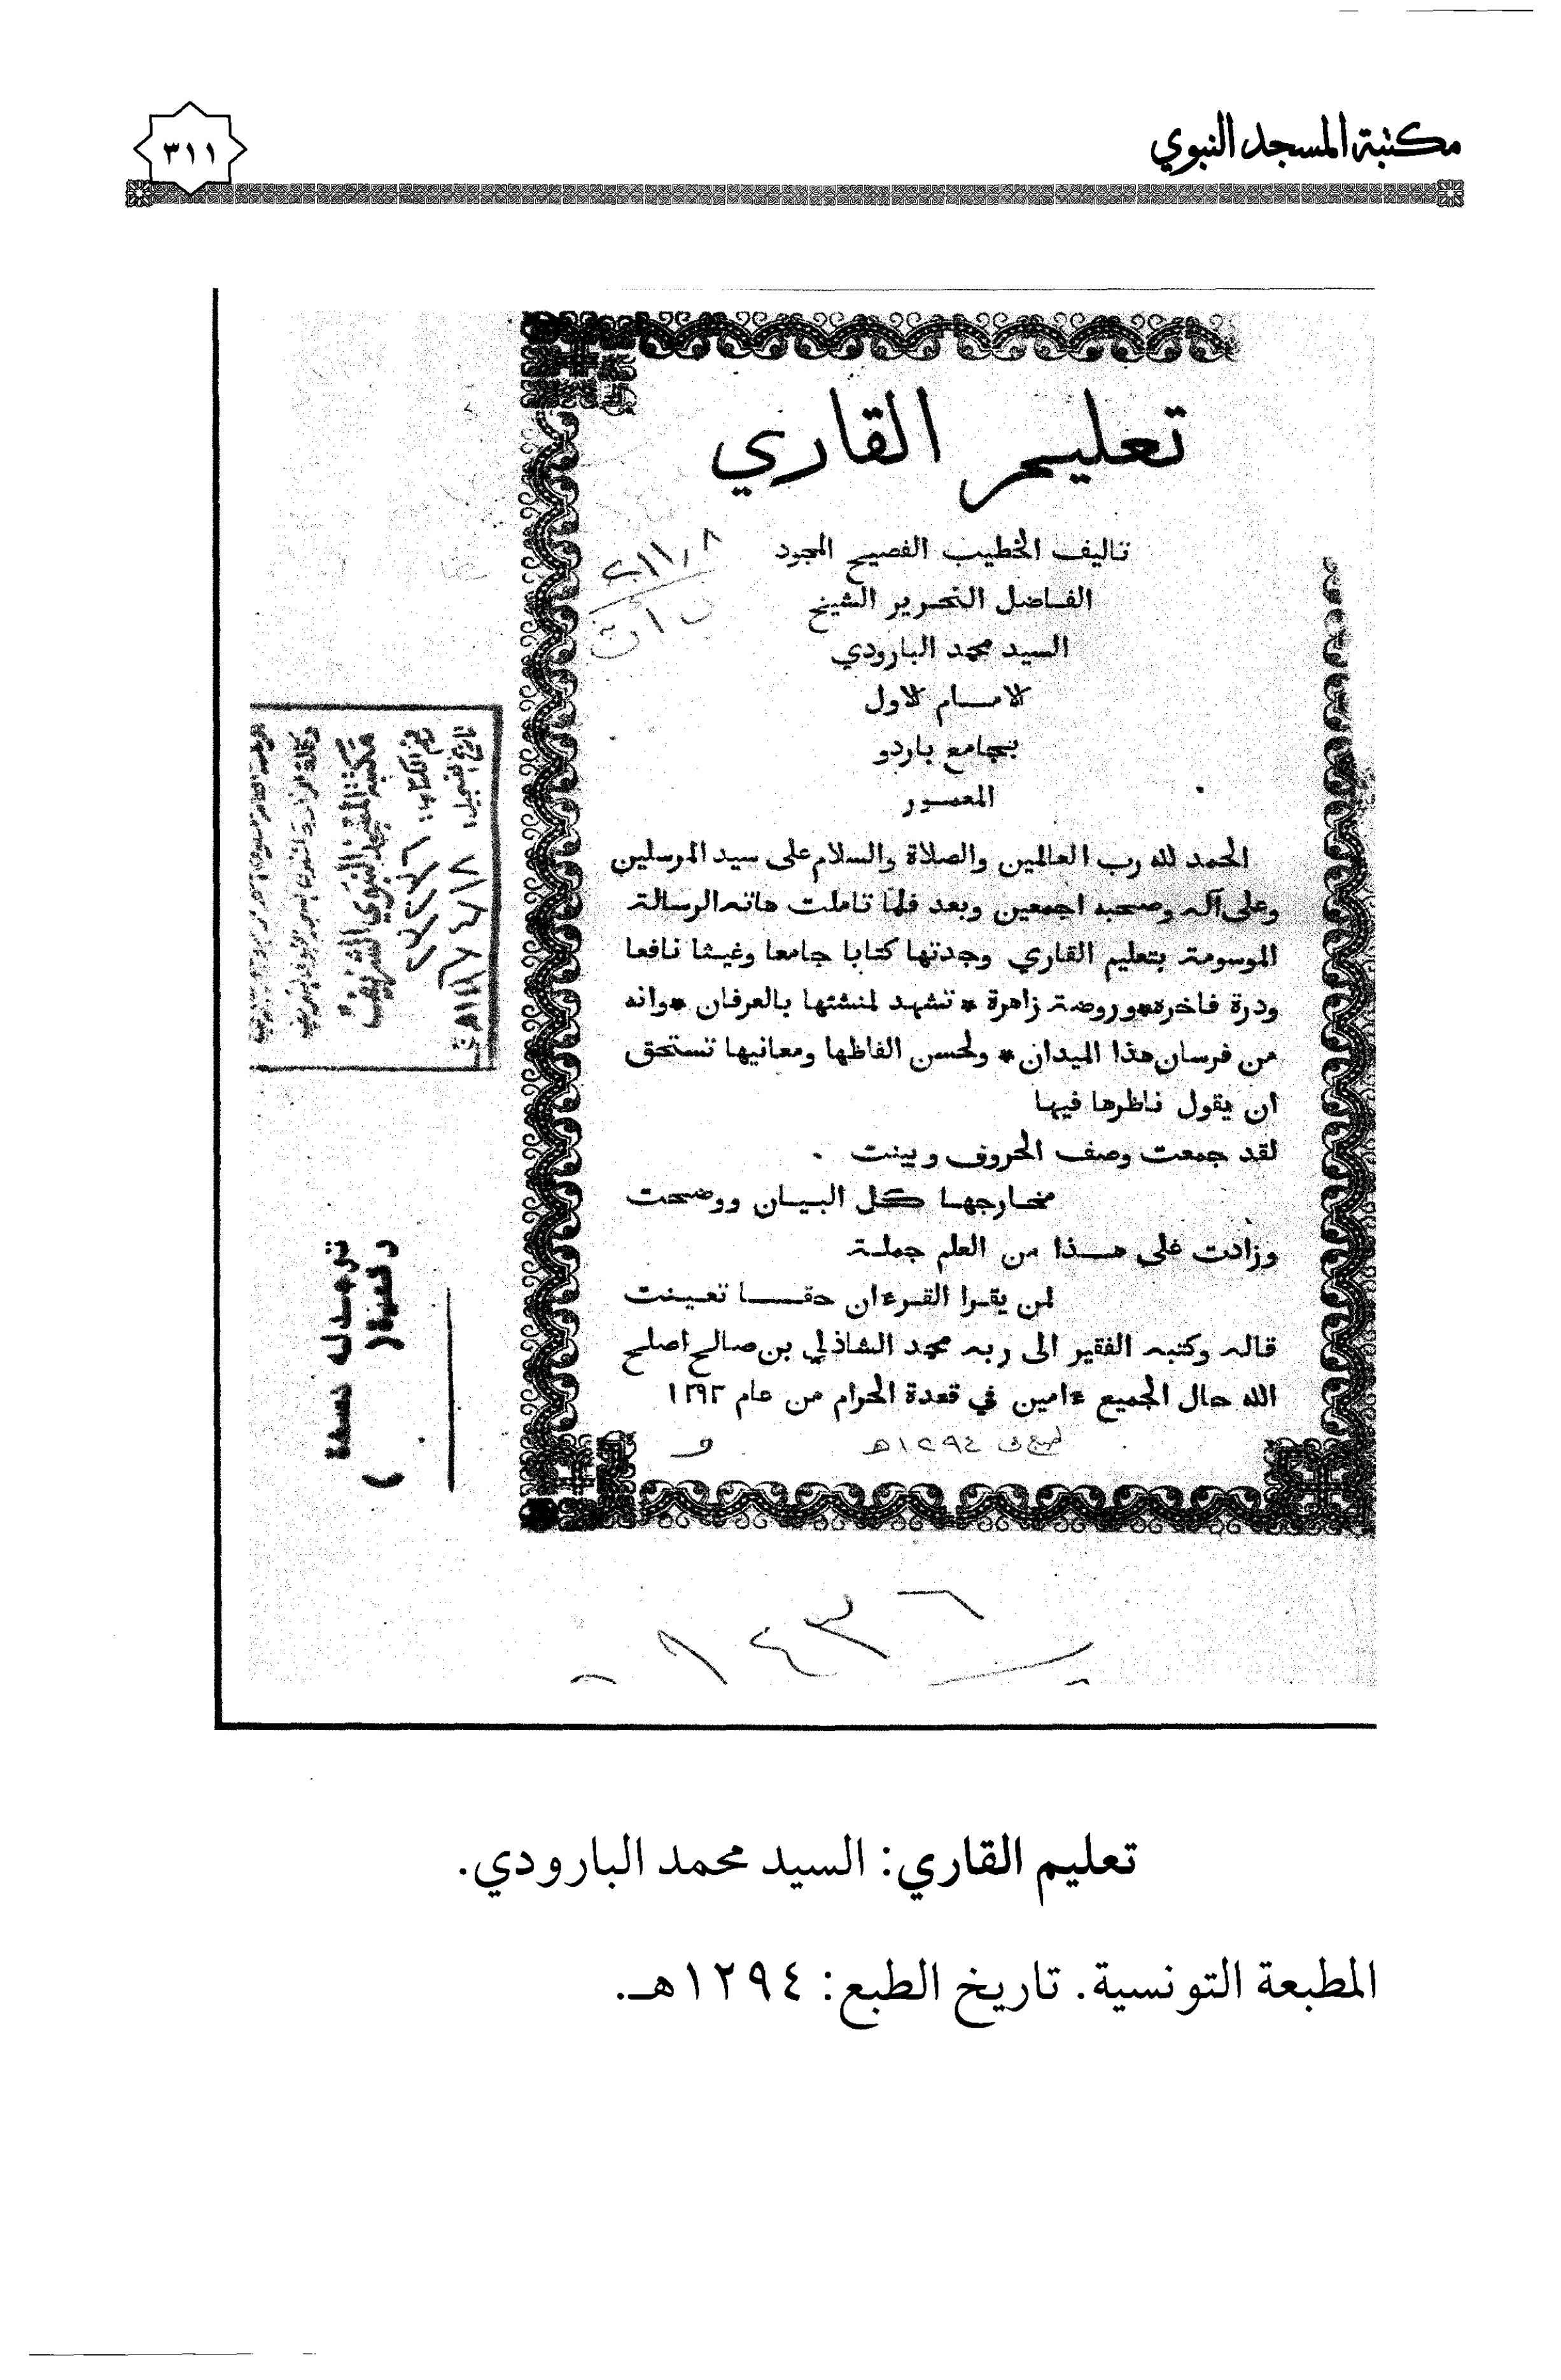 مكتبة المسجد النبوي
٣١١
تعليم القاري
تاليف الخطيب الفصيح المجود
الفاضل النحرير الشيخ
السيد محمد البارودي
الامام الاول
بجامع باردو
المعمور
٢١١٫٨
الحمد لله رب العالمين والصلاة والسلام على سيد المرسلين
وعلى آله وصحبه اجمعين وبعد فلما تاملت هاته الرسالة
الموسومة بتعليم القاري وجدتها كتابا جامعا وغيثا نافعا
ودرة فاخرة * وروضة زاهرة * تشهد لمنشئها بالعرفان * وانه
من فرسان هذا الميدان * ولحسن الفاظها ومعانيها تستحق
ان يقول ناظرها فيها
لقد جمعت وصف الحروف وبينت
مخارجها كل البيان ووضحت
وزادت على هذا من العلم جملة
لمن يقرا القرءان حقا تعينت
قاله وكتبه الفقير الى ربه محمد الشاذلي بن صالح اصلح
الله حال الجميع ءامين في قعدة الحرام من عام ١٢٩٣
طبع في ١٢٩٤هـ
مكتبة المسجد النبوي الشريف
رقم الكتاب:
تاريخ التسجيل:
تعليم القاري: السيد محمد البارودي.
المطبعة التونسية. تاريخ الطبع: ١٢٩٤هـ.